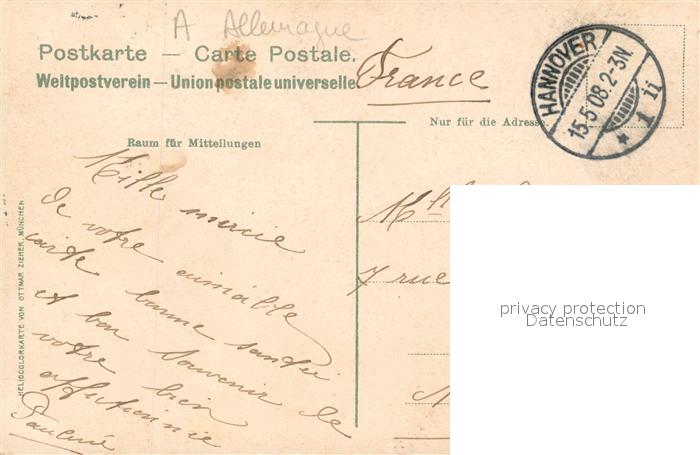 A Allemagne
Postkarte — Carte Postale.
Weltpostverein — Union postale universelle
France
HANNOVER
15.5.08.2-3N.
* 1 ii
Nur für die Adresse.
Raum für Mitteilungen
Mille mercie
De votre aimable
carte bonne santée
et bon Souvenir de
votre bien
affectionnie
Mlle
7 rue
HELIOCOLORKARTE VON OTTMAR ZIEHER, MÜNCHEN
privacy protection
Datenschutz